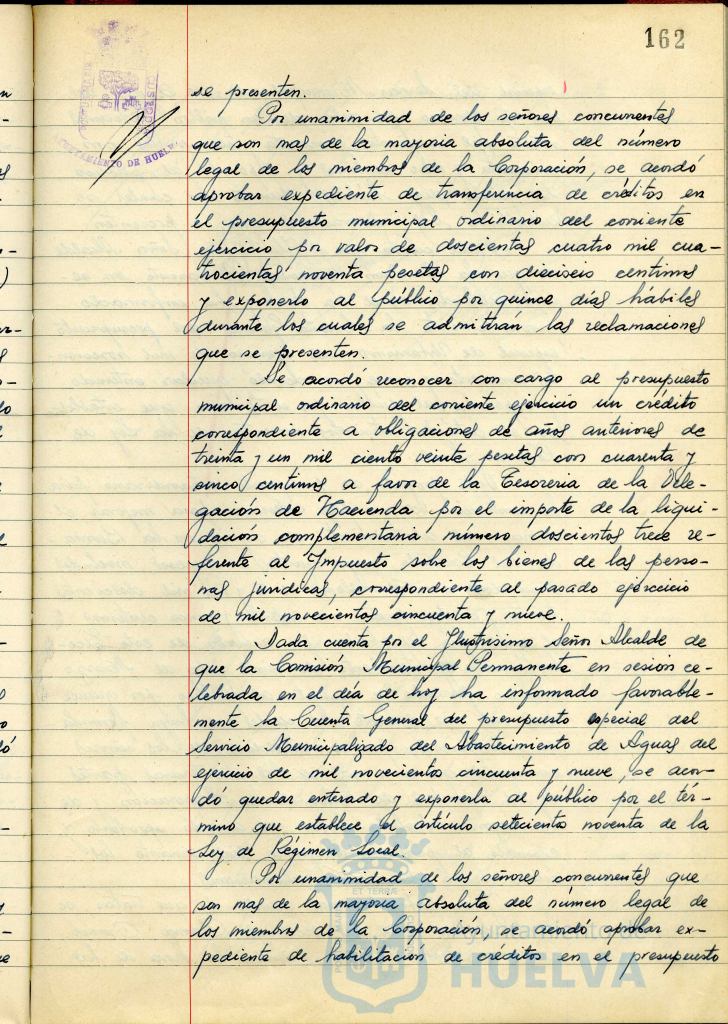 162
se presenten.
Por unanimidad de los señores concurrentes
que son mas de la mayoria absoluta del número
legal de los miembros de la Corporación, se acordó
aprobar expediente de transferencia de créditos en
el presupuesto municipal ordinario del corriente
ejercicio por valor de doscientas cuatro mil cua-
trocientas noventa pesetas con dieciseis centimos
y exponerlo al público por quince días hábiles
durante los cuales se admitirán las reclamaciones
que se presenten.
Se acordó reconocer con cargo al presupuesto
municipal ordinario del corriente ejercicio un crédito
correspondiente a obligaciones de años anteriores de
treinta y un mil ciento veinte pesetas con cuarenta y
cinco centimos a favor de la Tesoreria de la Dele-
gación de Hacienda por el importe de la liqui-
dación complementaria número doscientos trece re-
ferente al Impuesto sobre los bienes de las perso-
nas juridicas, correspondiente al pasado ejercicio
de mil novecientos cincuenta y nueve.
Dada cuenta por el Ilustrisimo Señor Alcalde de
que la Comisión Municipal Permanente en sesión ce-
lebrada en el día de hoy ha informado favorable-
mente la Cuenta General del presupuesto especial del
Servicio Municipalizado del Abastecimiento de Aguas del
ejercicio de mil novecientos cincuenta y nueve, se acor-
dó quedar enterado y exponerla al público por el tér-
mino que establece el artículo setecientos noventa de la
Ley de Régimen Local.
Por unanimidad de los señores concurrentes que
son mas de la mayoria absoluta del número legal de
los miembros de la Corporación, se acordó aprobar ex-
pediente de habilitación de créditos en el presupuesto
AYUNTAMIENTO DE HUELVA
CUSTODIA
Ayuntamiento de
HUELVA